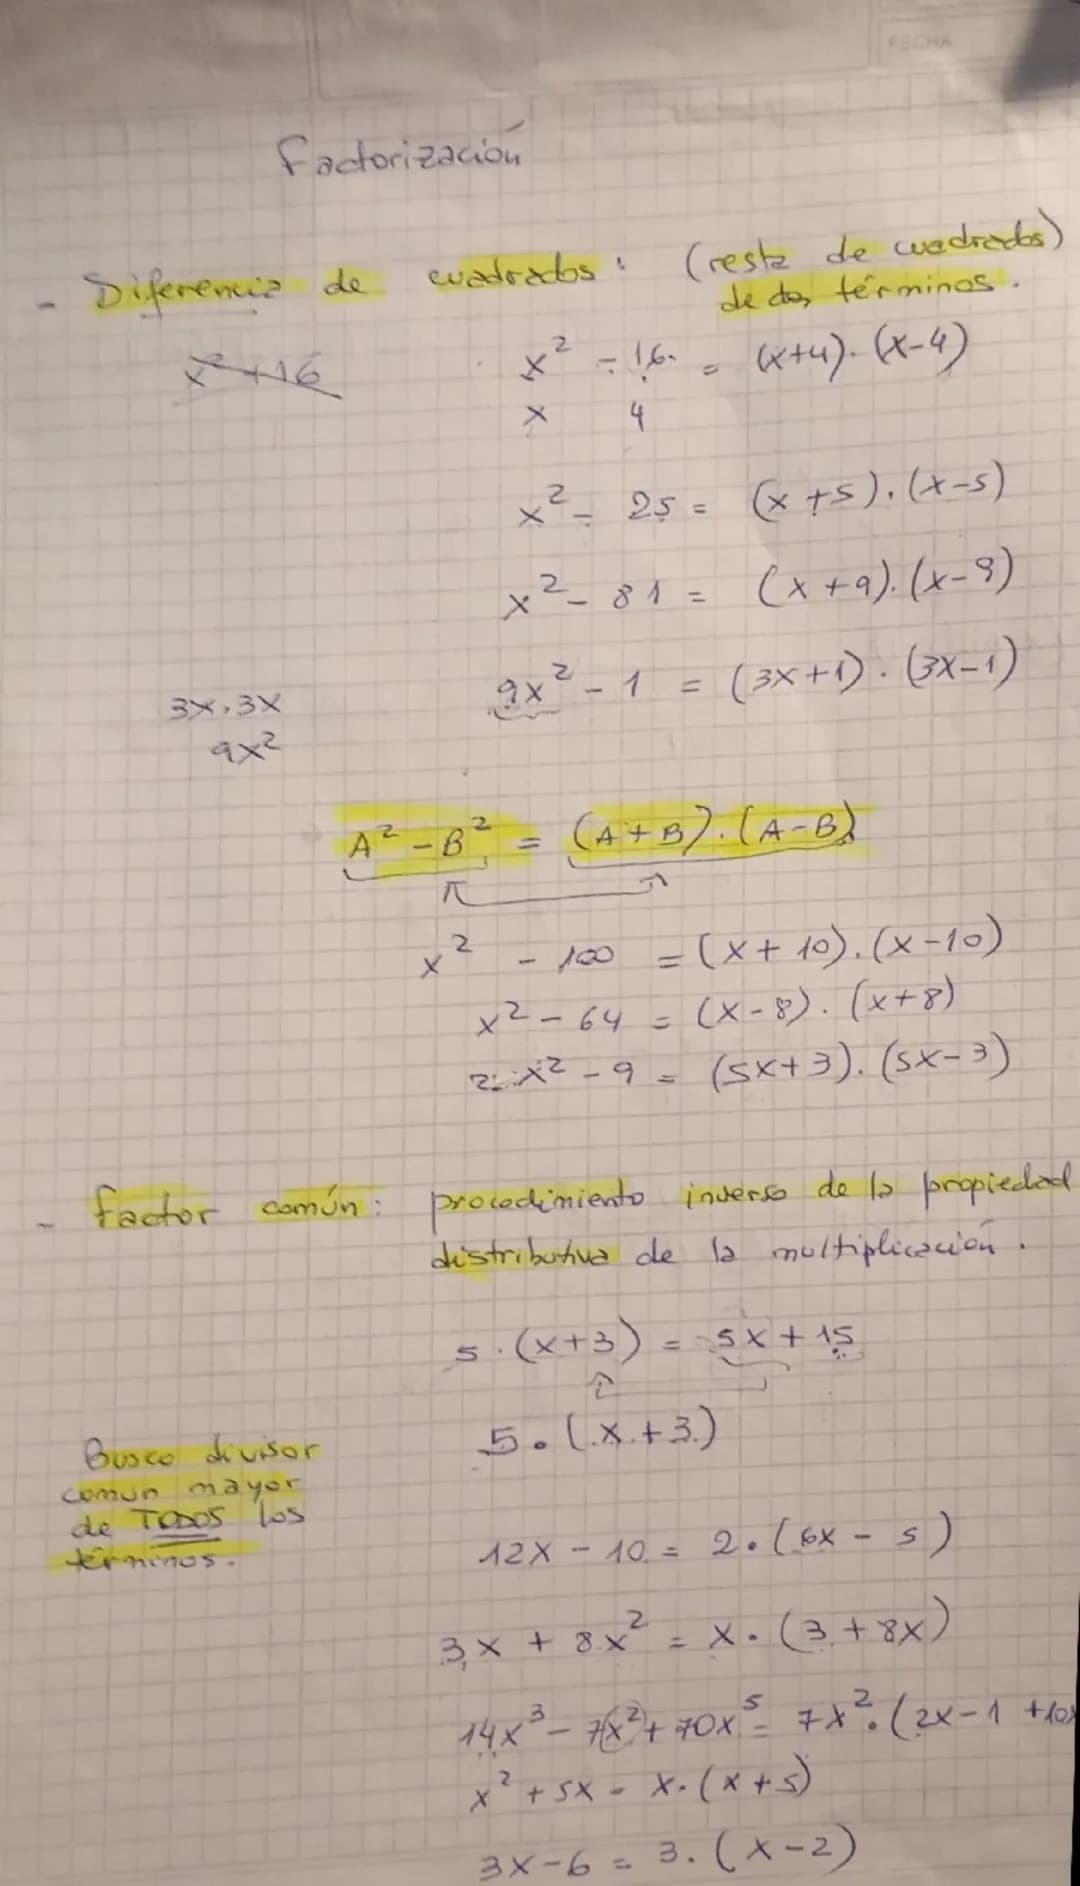 FECHA
Factorización
- Diferencia de cuadrados: (resta de cuadrados)
de dos términos.
x² + 16
x² - 16 = (x+4).(x-4)
x 4
x² - 25 = (x+5).(x-5)
x² - 81 = (x+9).(x-9)
9x² - 1 = (3x+1).(3x-1)
3x.3x
9x²
A² - B² = (A+B).(A-B)
x² - 100 = (x+10).(x-10)
x² - 64 = (x-8).(x+8)
x² - 9 = (5x+3).(5x-3)
- Factor común: procedimiento inverso de la propiedad
distributiva de la multiplicación.
5.(x+3) = 5x+15
5.(x+3)
Busco divisor
comun mayor
de TODOS los
términos.
12x - 10 = 2.(6x - 5)
3x + 8x² = x.(3+8x)
14x³ - 7x² + 70x⁵ = 7x².(2x-1 +10
x² + 5x = x.(x+5)
3x-6 = 3.(x-2)